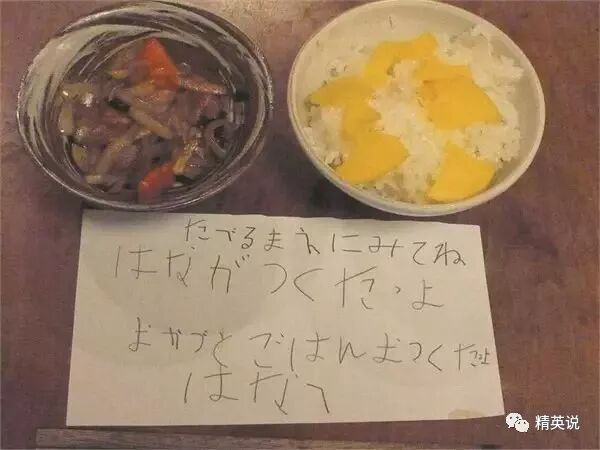 たべるまえにみてね
はながつくたっよ
おかづとごはんおつくたよ
はなへ
精英说